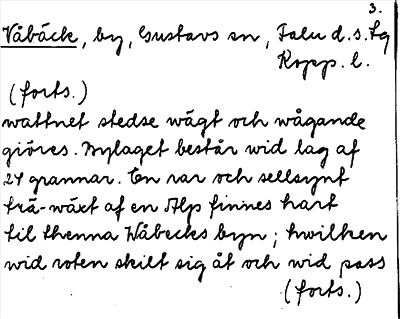 3.
Våbäck, by, Gustavs sn, Falu d.s. lg
Kopp. l.
(forts.)
wattnet stedse wägt och wågande
giöres. Bylaget består wid lag af
24 grannar. En rar och sellsynt
trä-wäxt af en Alp finnes hart
til thenna Wåbecks byn; hwilken
wid roten skilt sig åt och wid pass
(forts.)